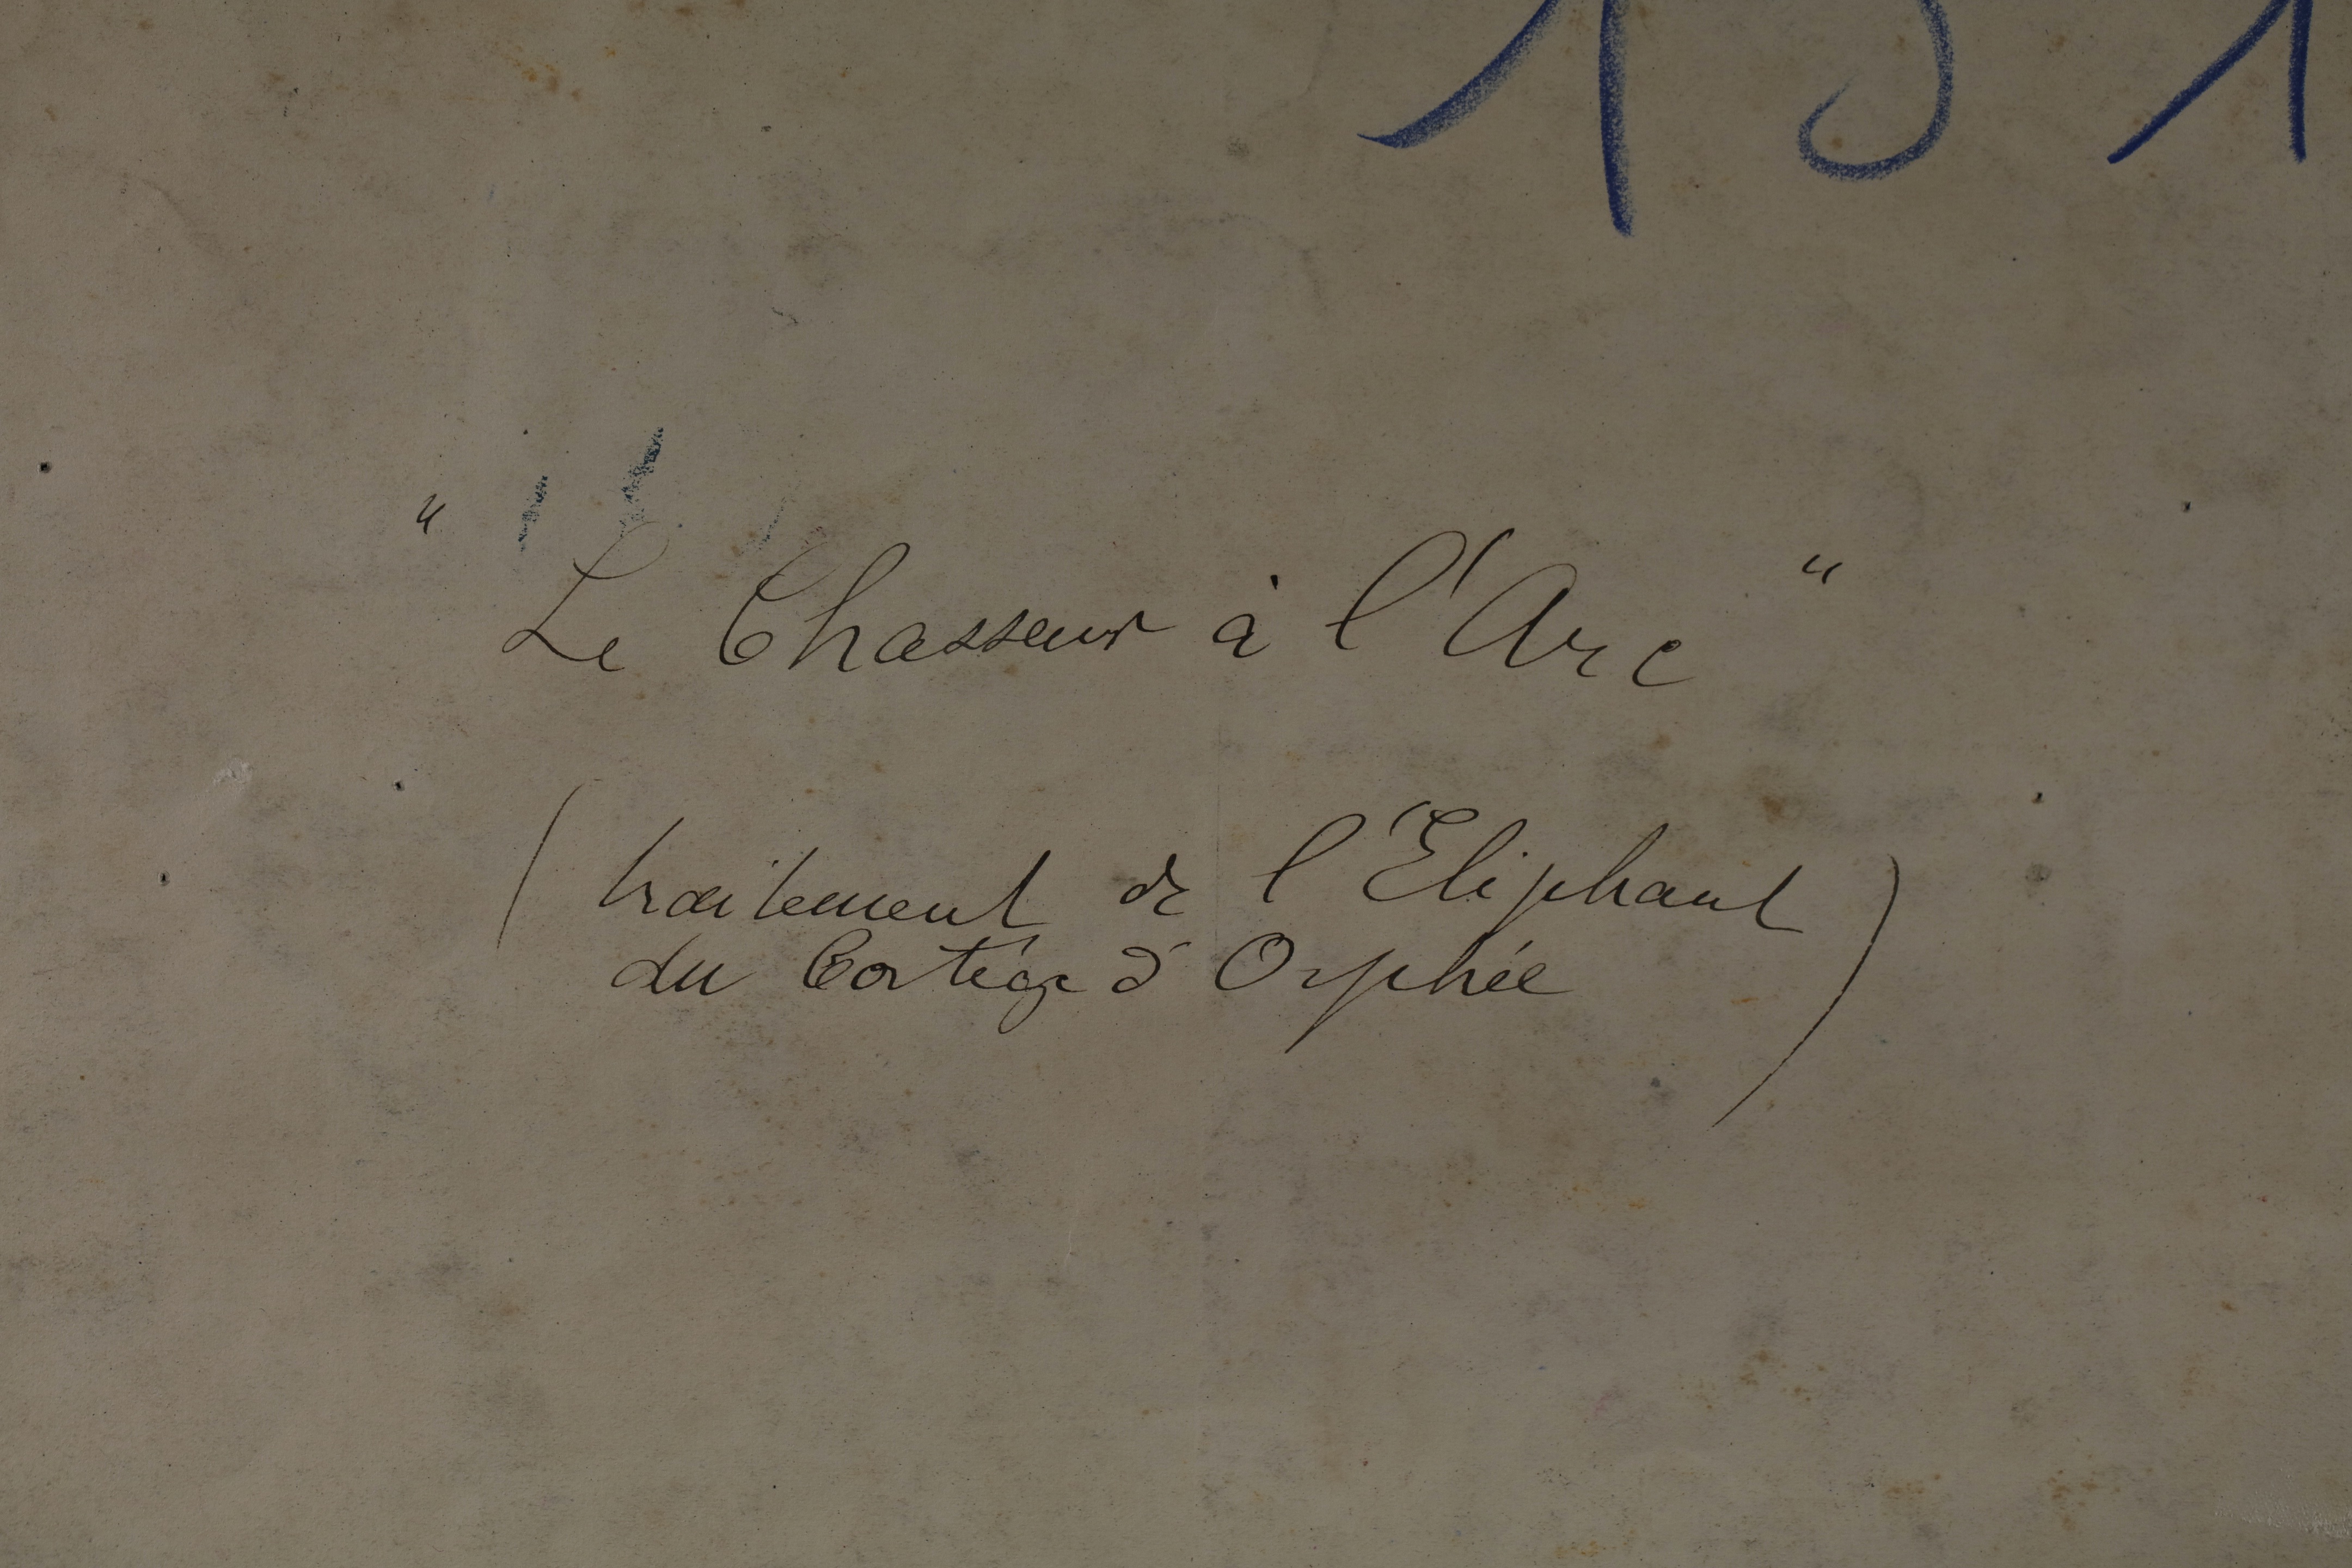 " Le Chasseur à l'Arc "
( traitement de l'Eléphant
du Cortège d'Orphée )